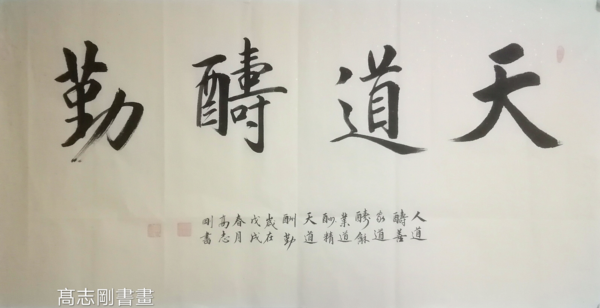 天道醻勤
人道
醻善
家道
酧
業道
精
天道
酬勤
歲在
戊戌
春月
高志
剛書
髙志剛書畫